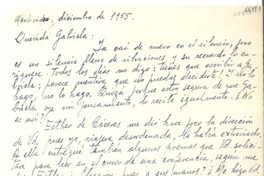 Montevideo, diciembre de 1955.
Querida Gabriela:
Ya casi de nuevo en el silencio, pero
es un silencio lleno de vibraciones y su recuerdo lo en-
riquece. Todos los días me digo: tienes que escribir a Ga-
briela; pero, ¿no ves que no puedas decidirte! ¿Y lo
hago, no lo hago. Quizá porque estoy segura de que Ga-
briela oye mi pensamiento, lo recibe igualmente. ¿No
es así?
Esther de Cáceres me dio hace poco la dirección
de Vd., pues yo, viajera desordenada, la había extraviado.
A ella entregué también algunos poemas que Vd. solici-
tara para leer en el curso de una conferencia, según me
dijo Esther. ¿ a sus manos? ¿No llegó Vd.